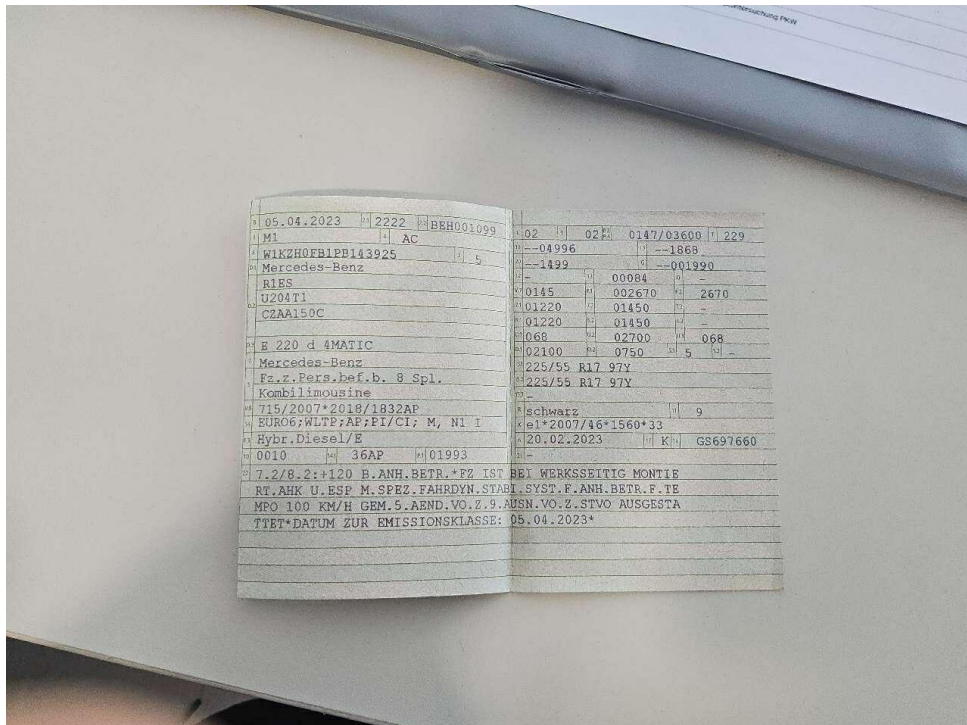 untersuchung PKW
05.04.2023 2222 BEH001099
M1 AC
W1KZH0FB1PB143925 5
Mercedes-Benz
R1ES
U204T1
CZAA150C
E 220 d 4MATIC
Mercedes-Benz
Fz.z.Pers.bef.b. 8 Spl.
Kombilimousine
715/2007*2018/1832AP
EURO6;WLTP;AP;PI/CI; M, N1 I
Hybr.Diesel/E
0010 36AP 01993
02 02 0147/03600 229
--04996 --1868
--1499 --001990
- 00084 -
0145 002670 2670
01220 01450 -
01220 01450 -
068 02700 068
02100 0750 5 -
225/55 R17 97Y
225/55 R17 97Y
-
schwarz 9
e1*2007/46*1560*33
20.02.2023 K GS697660
-
7.2/8.2:+120 B.ANH.BETR.*FZ IST BEI WERKSSEITIG MONTIE
RT.AHK U.ESP M.SPEZ.FAHRDYN.STABI.SYST.F.ANH.BETR.F.TE
MPO 100 KM/H GEM.5.AEND.VO.Z.9.AUSN.VO.Z.STVO AUSGESTA
TTET*DATUM ZUR EMISSIONSKLASSE: 05.04.2023*